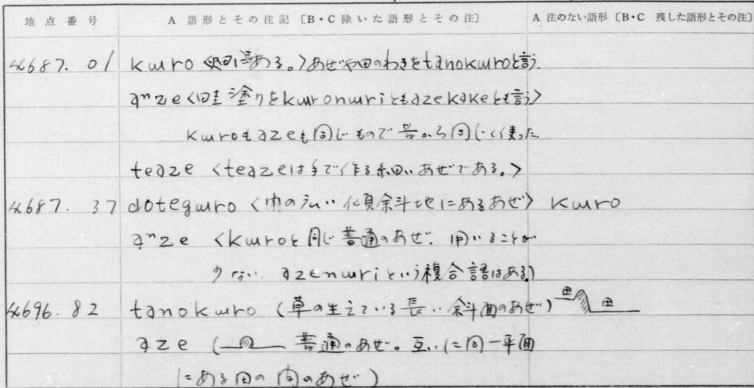 地点番号 A 語形とその注記〔B・C 除いた語形とその注〕 A 注のない語形〔B・C 残した語形とその注〕
4687.01 kuro 〈畑に沿ある。〉あぜや田のわきをtanokuroと言う。
aⁿze 〈畦塗りをkuronuriともazekakeとも言う〉
kuroもazeも同じもので昔から同じく使った
teaze 〈teazeは手で作る細いあぜである。〉
4687.37 doteguro 〈巾の広い傾斜地にあるあぜ〉 kuro
aⁿze 〈kuroと同じ普通のあぜ。用いることが
少ない。azenuriという複合語はある〉
4696.82 tanokuro (草の生えている長い斜面のあぜ) 田 田
aze ( 普通のあぜ。互いに同一平面
にある田の間のあぜ)